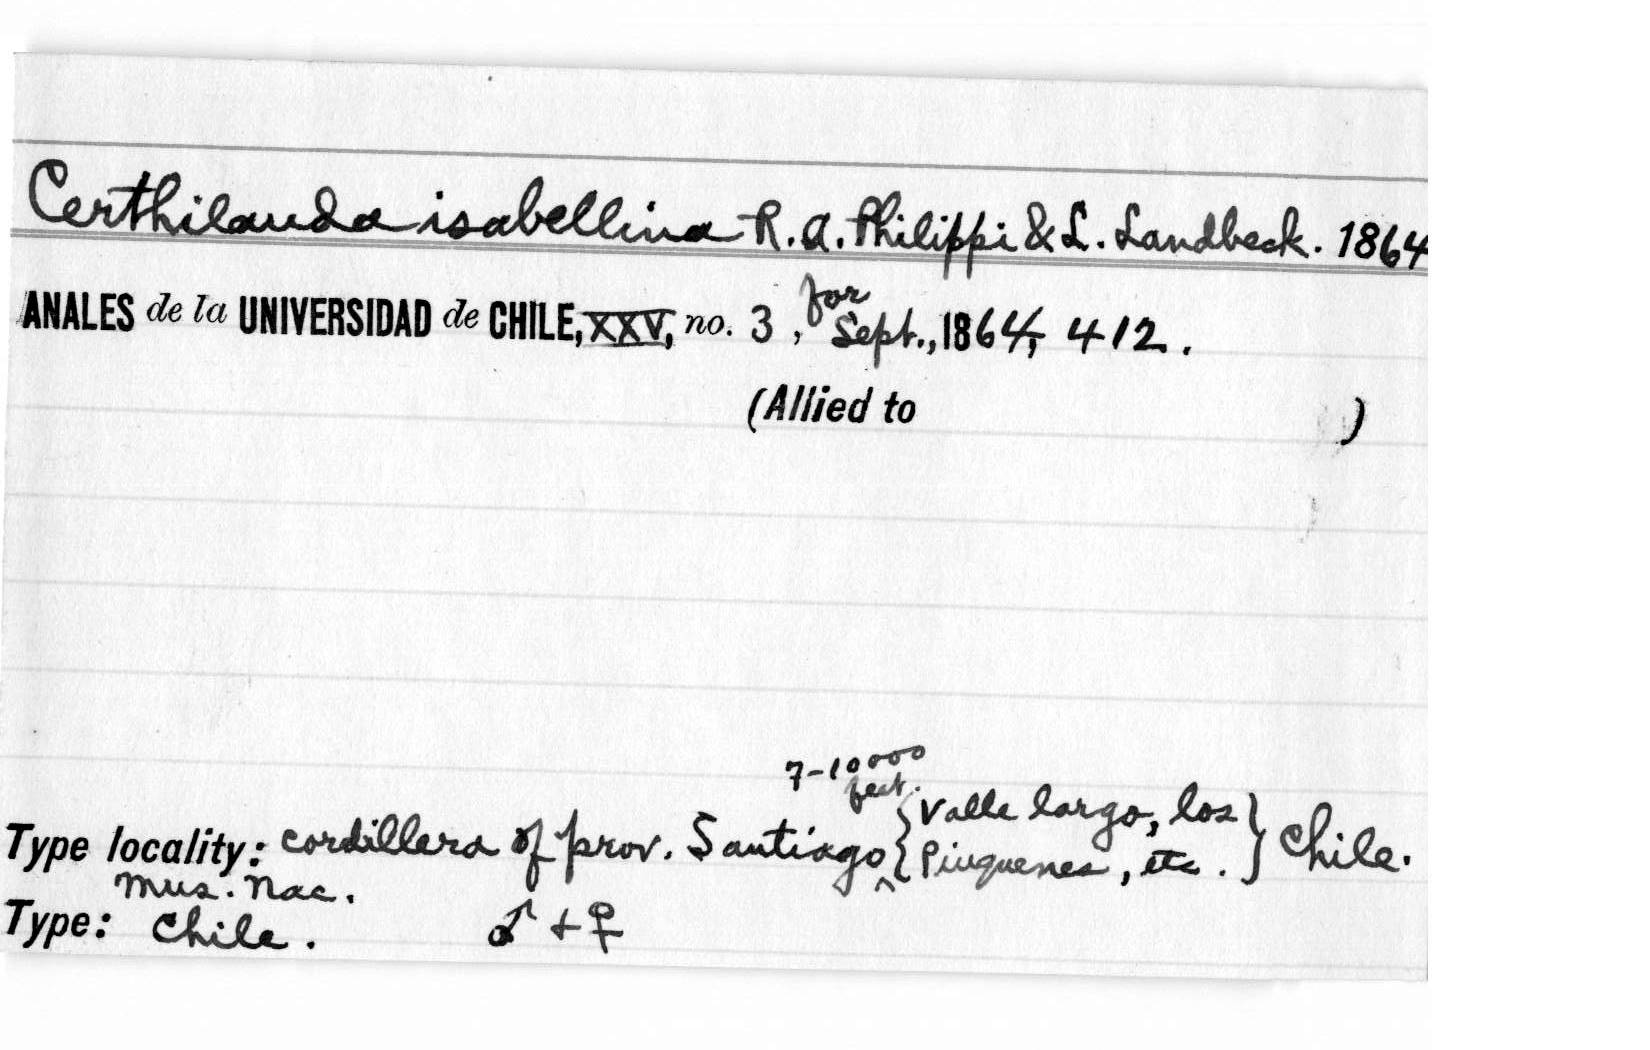 Certhilauda isabellina R. A. Philippi & L. Landbeck. 1864
ANALES de la UNIVERSIDAD de CHILE, XXV, no. 3, for Sept., 1864, 412.
(Allied to )
7-10000
feet.
Type locality: cordillera of prov. Santiago ^ { Valle largo, los
Piuquenes, etc. } Chile.
Mus. Nac.
Type: Chile. ♂ + ♀